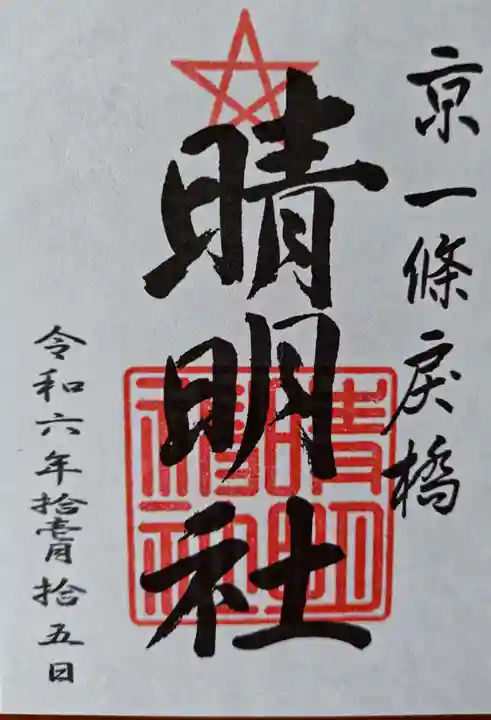 京一條戻橋
晴明社
晴明神社
令和六年拾壱月拾五日